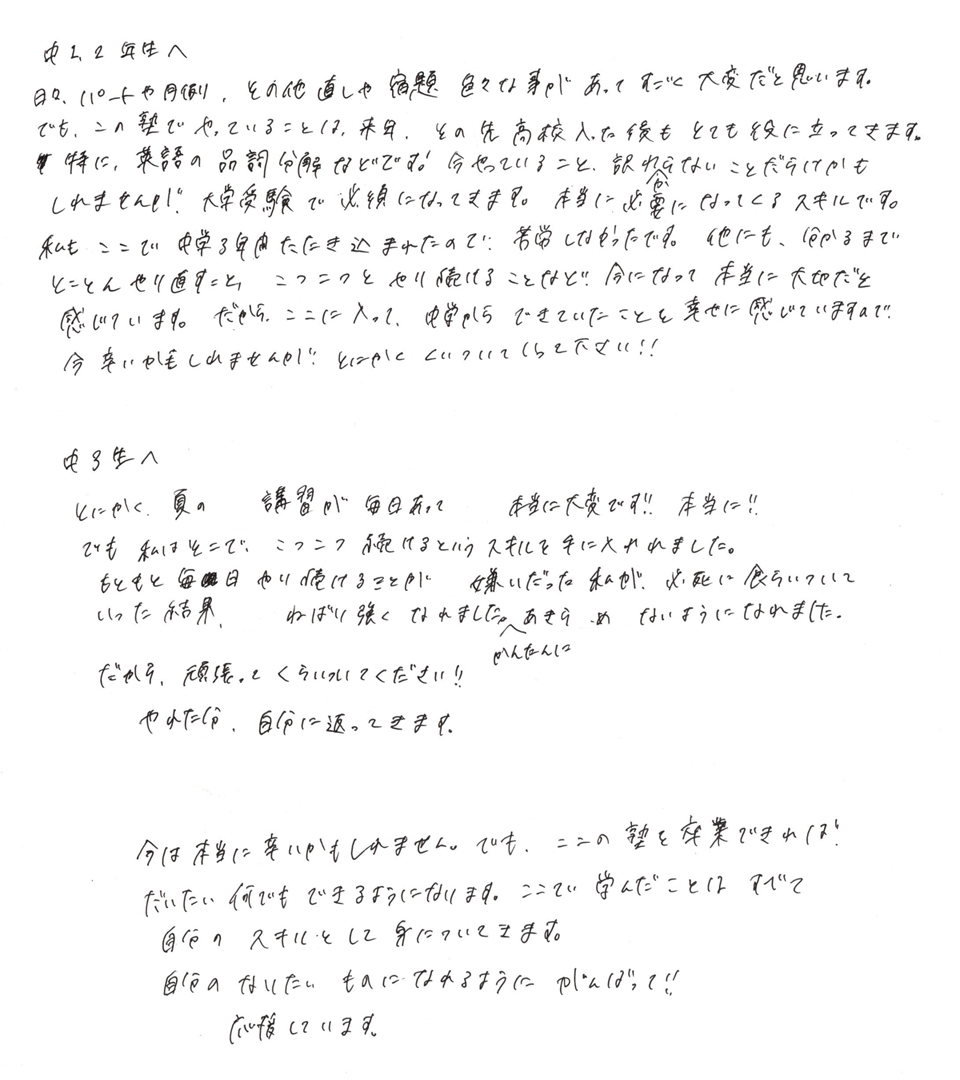 中1,2年生へ
日々、パートや月例、その他直しや宿題 色々な事があってすごく大変だと思います。
でも、この塾でやっていることは、来年、その先高校入った後もとても役に立ってきます。
特に、英語の品詞分解などです! 今やっていること、訳わからないことだらけかも
しれませんが、大学受験で必須になってきます。本当に必要になってくるスキルです。
私もここで中学3年間たたき込まれたので、苦労しなかったです。他にも、分かるまで
とことんやり直すこと、こつこつとやり続けることなど、今になって本当に大切だと
感じています。だから、ここに入って、中学からできていたことを幸せに感じていますので
今辛いかもしれませんが、とにかくくいついてって下さい!!
中3生へ
とにかく、夏の 講習が毎日あって 本当に大変です!! 本当に!!
でも私はそこで、こつこつ続けるというスキルを手に入れれました。
もともと毎日やり続けることが 嫌いだった私が、必死に食らいついて
いった結果、 ねばり強くなれました。かんたんにあきらめないようになれました。
だから、頑張ってくらいついてください!!
やれた分、自分に返ってきます。
今は本当に辛いかもしれません。でも、ここの塾を卒業できれば、
だいたい何でもできるようになります。ここで学んだことはすべて
自分のスキルとして身についてきます。
自分のなりたいものになれるようにがんばって!!
応援しています。